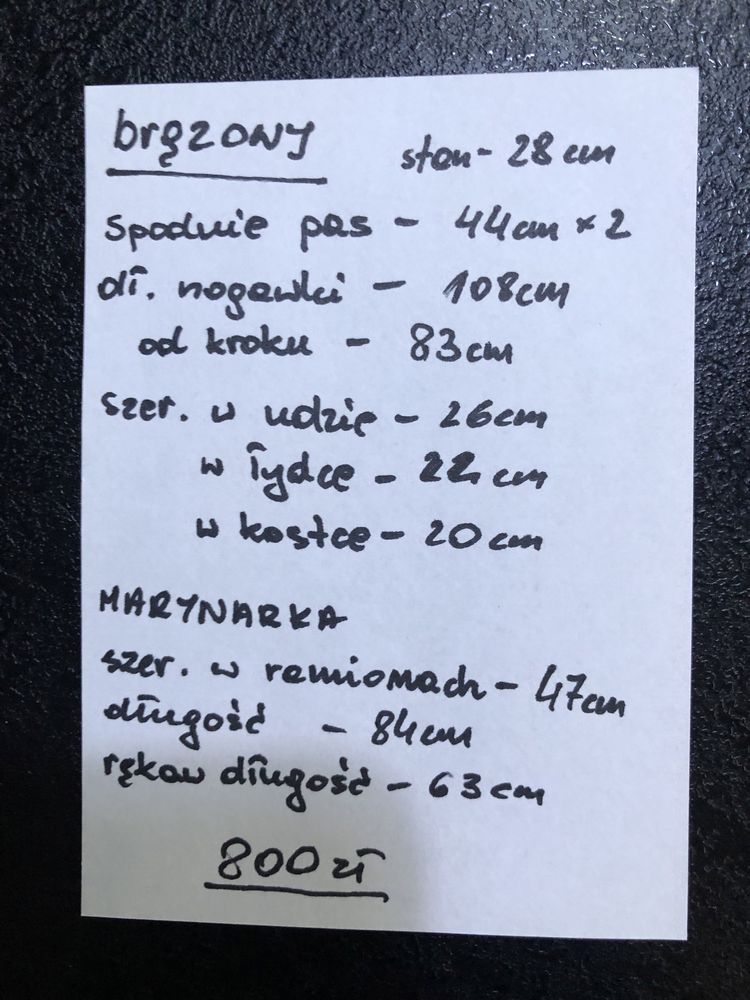 brązowy
stan - 28 cm
Spodnie pas - 44cm × 2
dł. nogawki - 108cm
od kroku - 83cm
szer. w udzie - 26cm
w łydce - 22 cm
w kostce - 20 cm
MARYNARKA
szer. w ramionach - 47cm
długość - 84cm
rękaw długość - 63 cm
800 zł